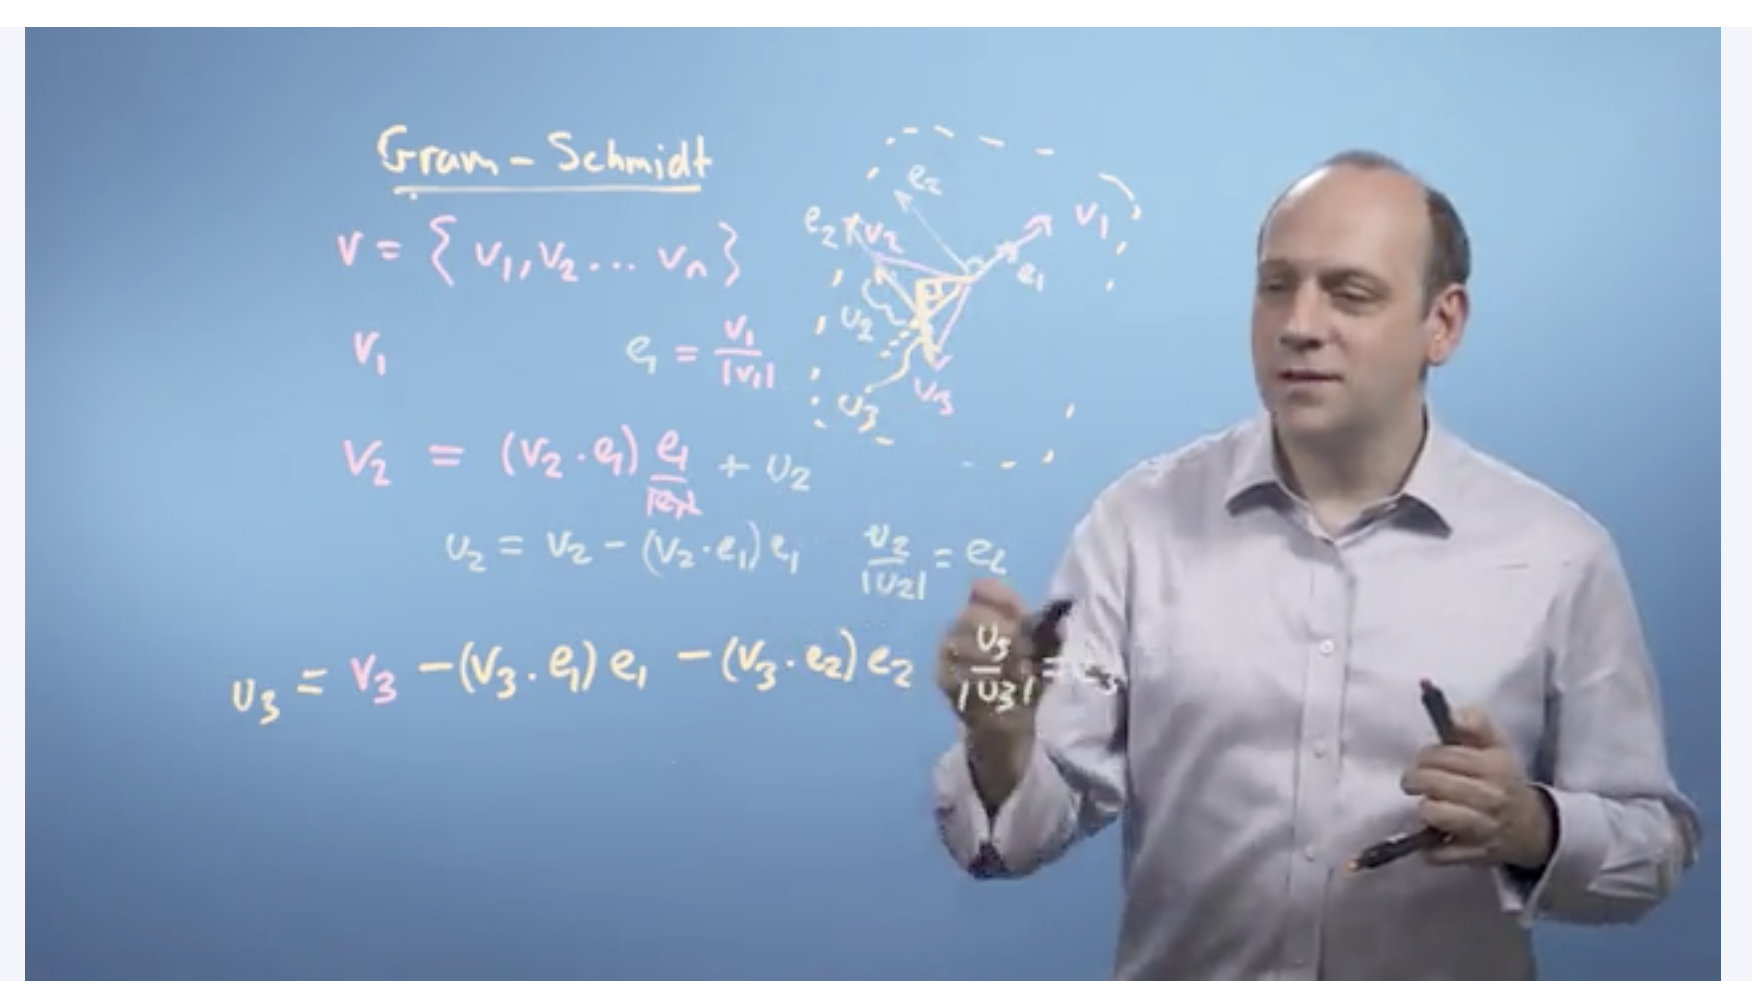 Gram - Schmidt
V = { V₁, V₂ ... Vₙ }
V₁ e₁ = V₁/|V₁|
V₂ = (V₂ · e₁) e₁/|e₁| + U₂
U₂ = V₂ - (V₂ · e₁) e₁ U₂/|U₂| = e₂
U₃ = V₃ - (V₃ · e₁) e₁ - (V₃ · e₂) e₂ U₃/|U₃| = e₃
e₂
e₂ V₂ V₁
e₁
U₂
U₃ V₃